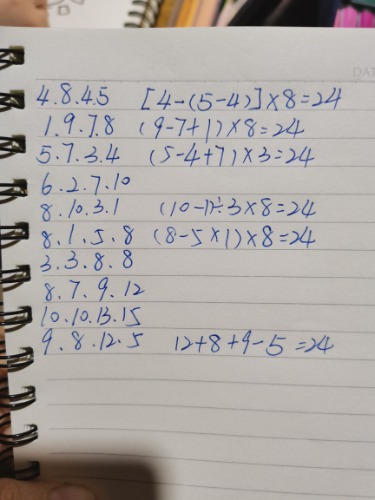 DAT
4.8.4.5 [4-(5-4)]×8=24
1.9.7.8 (9-7+1)×8=24
5.7.3.4 (5-4+7)×3=24
6.2.7.10
8.10.3.1 (10-1)÷3×8=24
8.1.5.8 (8-5×1)×8=24
3.3.8.8
8.7.9.12
10.10.13.15
9.8.12.5 12+8+9-5=24